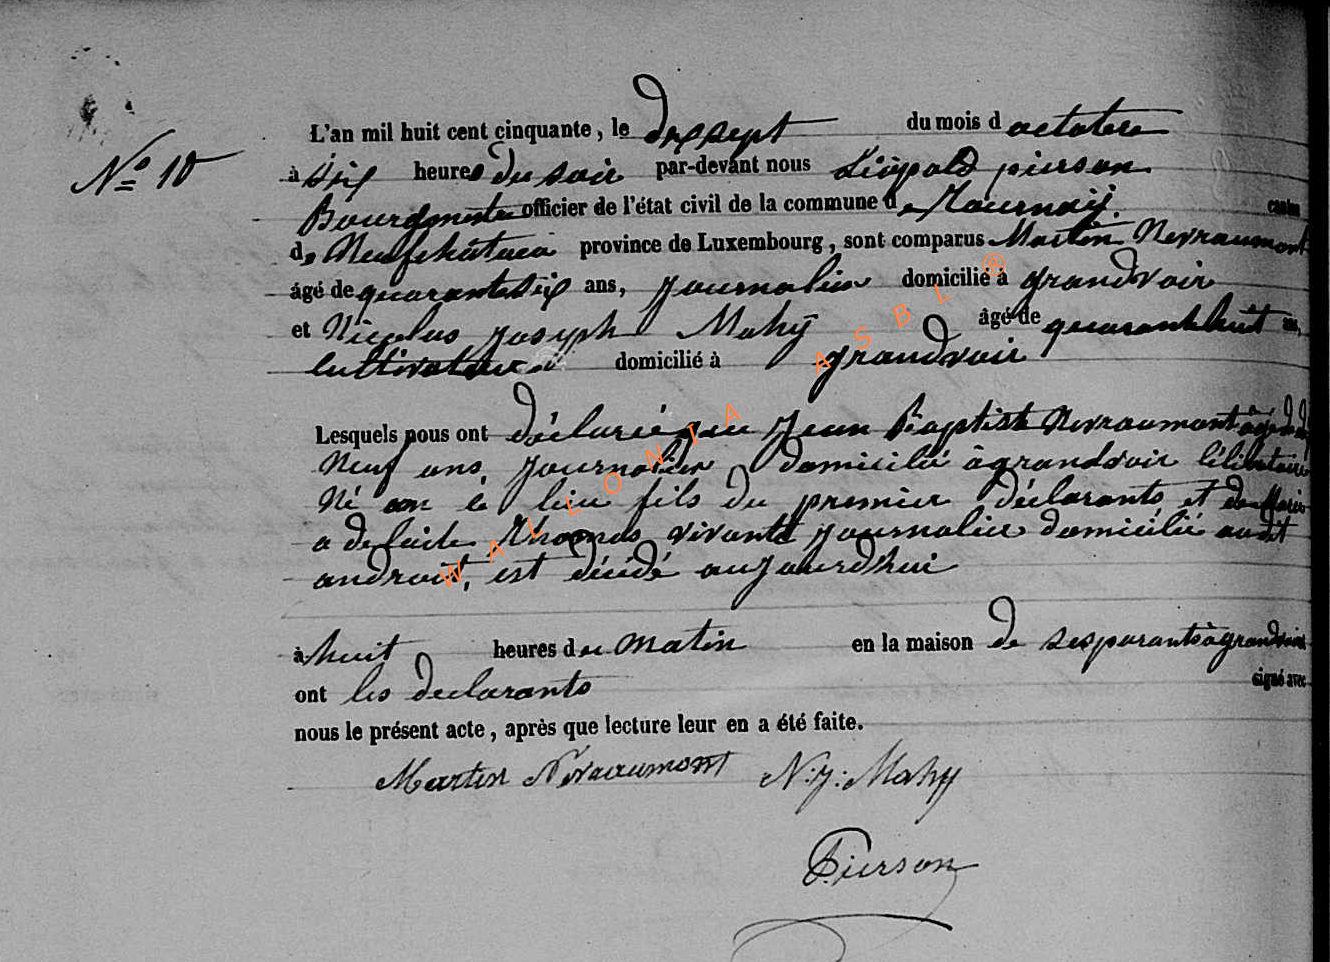 L'an mil huit cent cinquante, le dixsept du mois d octobre
N° 10
à six heures du soir par-devant nous Léopold pierson
Bourgmestre officier de l'état civil de la commune de Tournay. canton
de Neufchâteau province de Luxembourg, sont comparus Martin Nevraumont
âgé de quarantesix ans, journalier domicilié à grandvoir
et Nicolas joseph Mahy âgé de quarantehuit ans,
cultivateur domicilié à grandvoir
Lesquels nous ont déclaré que jean Baptiste Nevraumont âgé de
Neuf ans journalier domicilié à grandvoir célibataire
Né au lieu fils du premier déclarants et de Marie
adelaide Thomas vivante journalier domicilié audit
androit, est décédé aujourdhui
à huit heures du matin en la maison de ses parants à grandvoir
ont les declarants signé avec
nous le présent acte, après que lecture leur en a été faite.
Martin Nevraumont N. J. Mahy
Pierson
WALLONIA ASBL ®